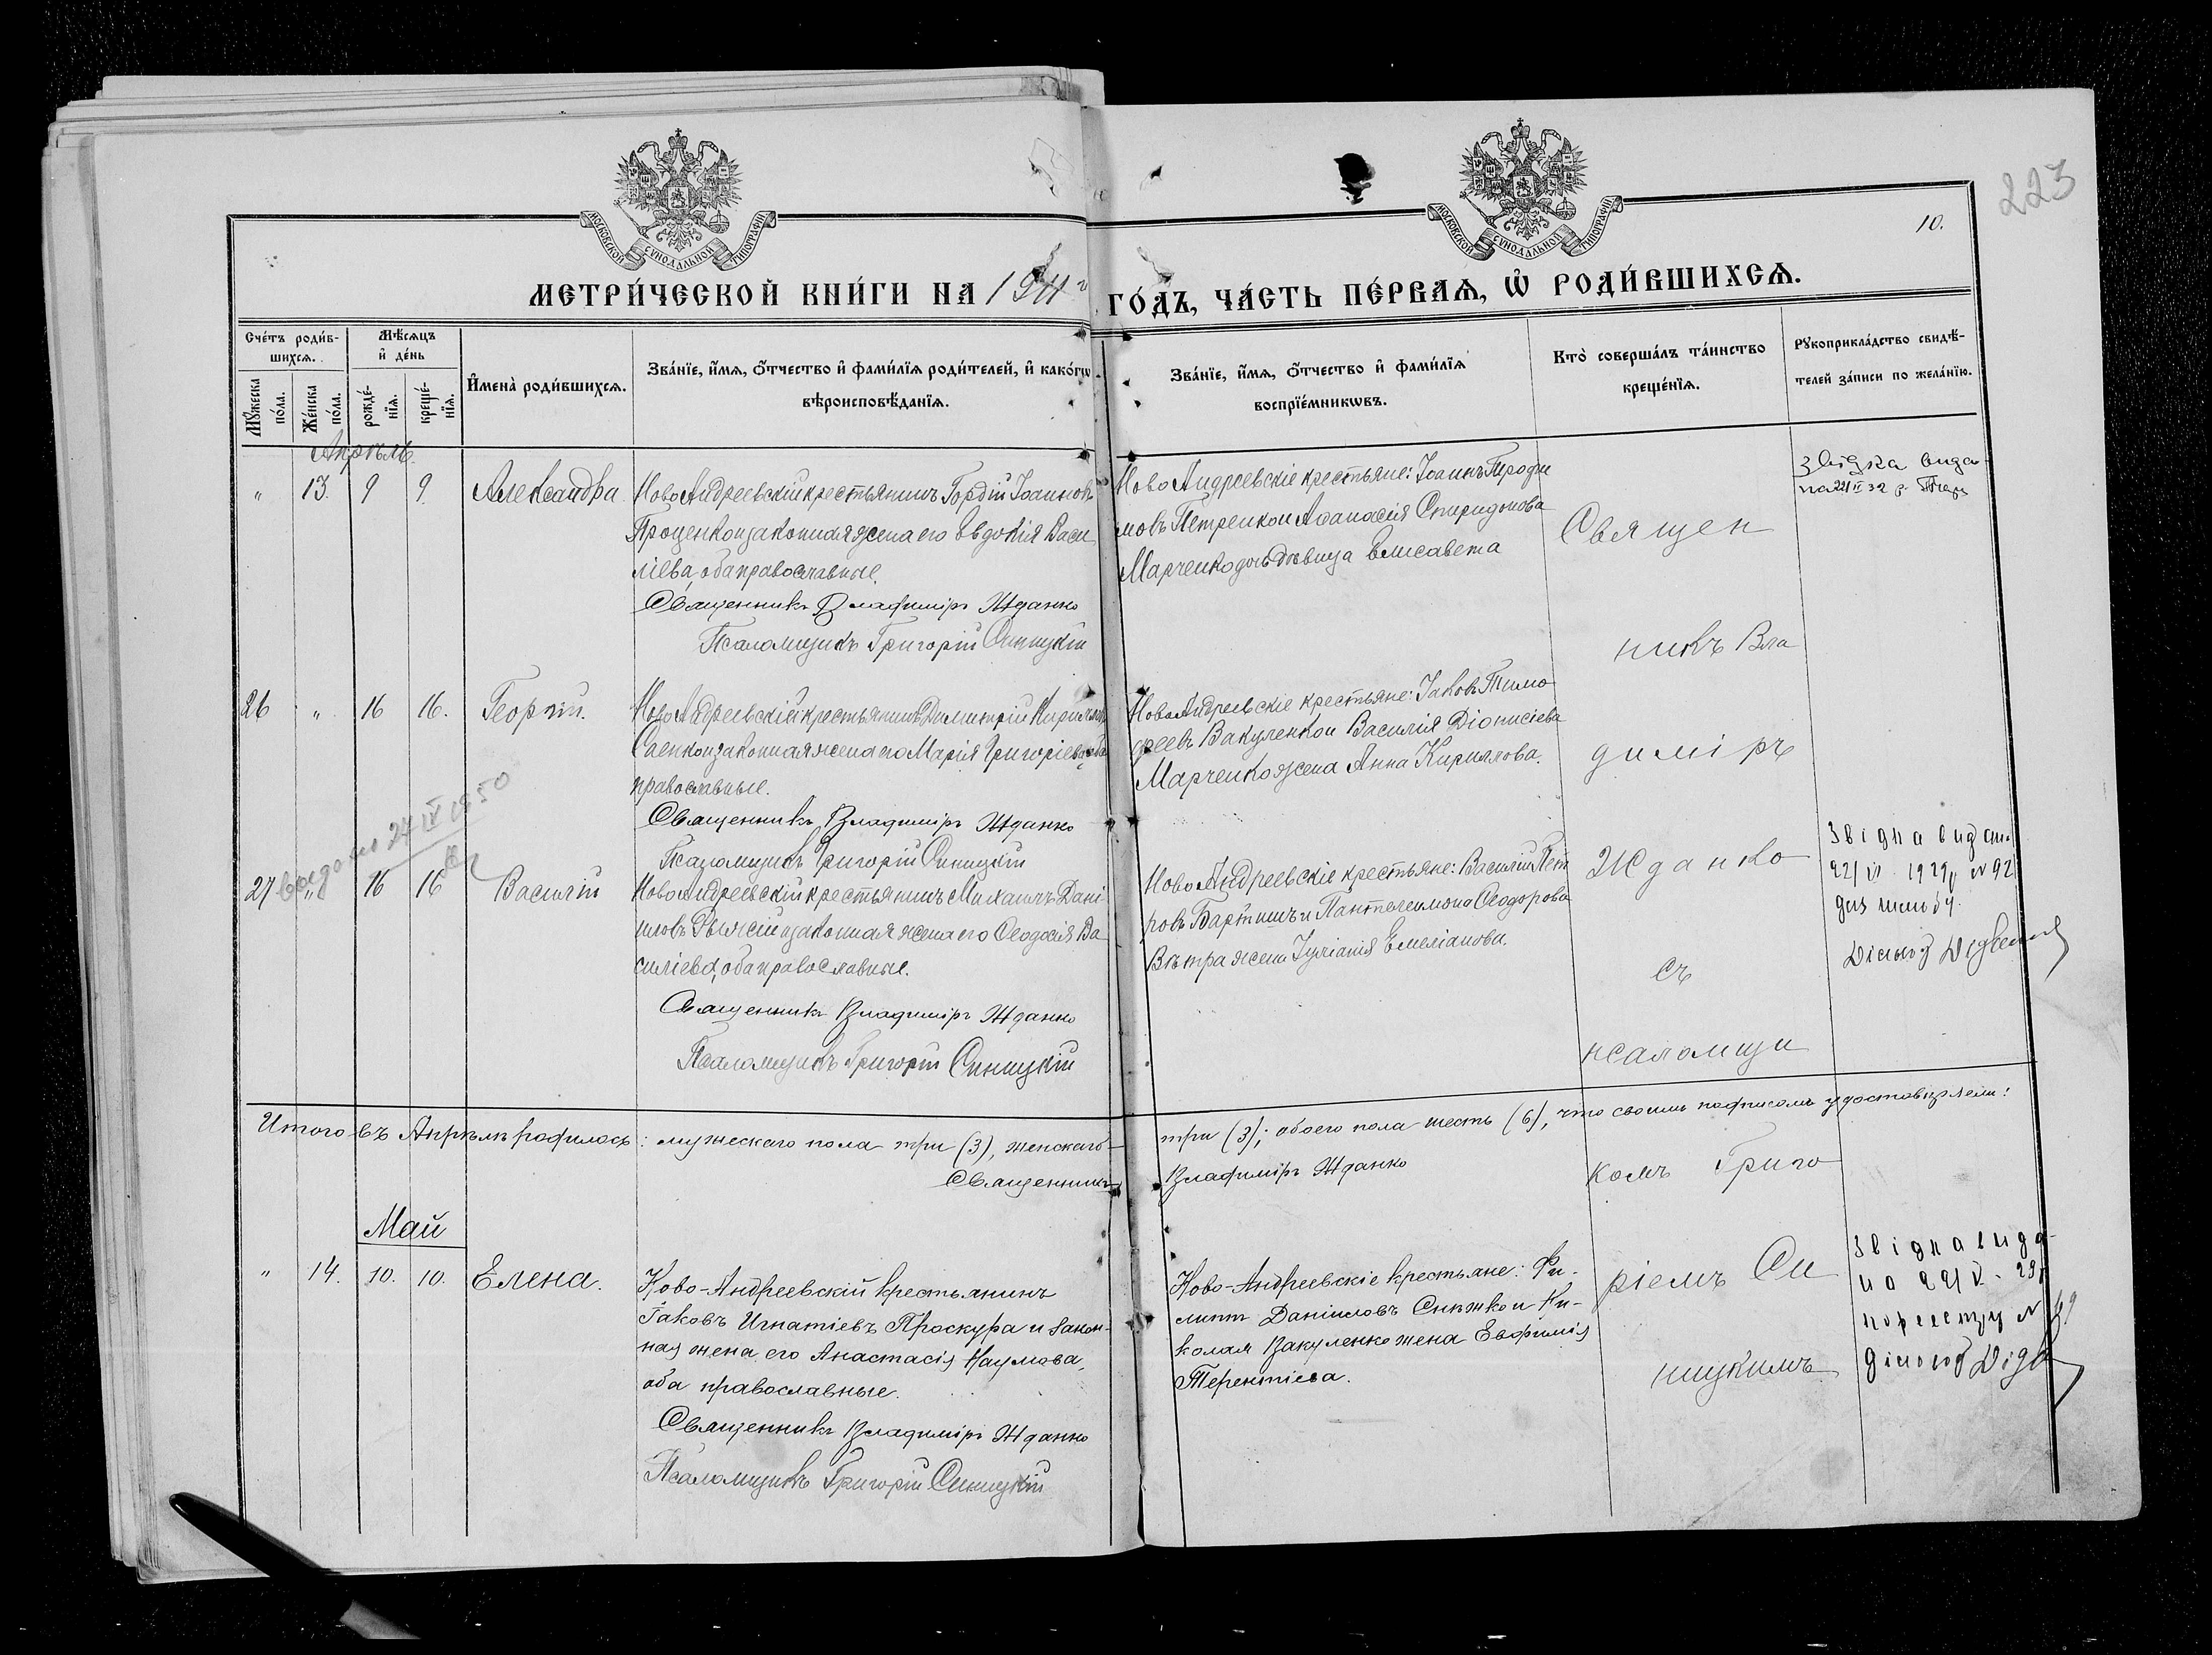 223
10.
МОСКОВСКОЙ СѴНОДАЛЬНОЙ ТИПОГРАФІИ
МОСКОВСКОЙ СѴНОДАЛЬНОЙ ТИПОГРАФІИ
МЕТРИ́ЧЕСКОЙ КНИ́ГИ НА 1911 г ГО́ДЪ, ЧА́СТЬ ПЕ́РВАѦ, Ѡ҆ РОДИ́ВШИХСѦ.
Сче́тъ роди́в-
шихсѧ.
Мѣ́сѧцъ
и҆ де́нь
Мꙋ́жеска по́ла.
Же́нска по́ла.
рожде́-
нїѧ.
креще́-
нїѧ.
И҆мена̀ роди́вшихсѧ.
Зва́нїе, и҆́мѧ, ѻ҆́тчество и҆ фами́лїѧ роди́телей, и҆ како́гѡ
вѣроисповѣ́данїѧ.
Зва́нїе, и҆́мѧ, ѻ҆́тчество и҆ фами́лїѧ
воспрїе́мникѡвъ.
Кто̀ соверша́лъ та́инство
креще́нїѧ.
Рꙋкоприкла́дство свидѣ́-
телей за́писи по жела́нїю.
Апрѣль.
" 13. 9 9. Александра.
Ново Андреевскій крестьянинъ Гордій Іоанновъ
Проценко и законная жена его Евдокія Васи
ліева, оба православные.
Священникъ Владиміръ Жданко
Псаломщикъ Григорій Синицкій
Ново Андреевскіе крестьяне: Іоаннъ Трофи
мовъ Петренко и Аѳанасія Спиридонова
Марченко дочь дѣвица Елисавета
Священ
никъ Вла
звідка вида
на 22/II 32 р.
26 " 16 16. Георгій.
Ново Андреевскій крестьянинъ Димитрій Кириловъ
Саенко и законная жена его Марія Григоріева, оба
православные.
Священникъ Владиміръ Жданко
Псаломщикъ Григорій Синицкій
Ново Андреевскіе крестьяне: Іаковъ Тимо
ѳеевъ Вакуленко и Василія Діонисіева
Марченко жена Анна Кириллова.
диміръ
выдано 24 IV 1950
27 " 16 16 Василій
Ново Андреевскій крестьянинъ Михаилъ Дані
иловъ и законная жена его Ѳеодосія Ва
силіева, оба православные.
Священникъ Владиміръ Жданко
Псаломщикъ Григорій Синицкій
Ново Андреевскіе крестьяне: Василій Пет
ровъ Бартишъ и Пантелеимона Ѳеодорова
Вѣтра жена Іуліанія Емеліанова.
Жданко
съ
псаломщи
звідка видана
22/VI 1929 р N 92
для шлюбу.
Діловод
Итого въ Апрѣлѣ родилось: мужескаго пола три (3), женскаго три (3); обоего пола шесть (6), что своимъ подписомъ удостовѣряемъ:
Священникъ Владиміръ Жданко
комъ Григо
Май
" 14. 10. 10. Елена.
Ново-Андреевскій крестьянинъ
Іаковъ Игнатіевъ Проскура и закон-
ная жена его Анастасія Наумова,
оба православные.
Священникъ Владиміръ Жданко
Псаломщикъ Григорій Синицкій
Ново-Андреевскіе крестьяне: Фи-
липпъ Даніиловъ Снѣжко и Ни-
колая Вакуленко жена Евфимія
Терентіева.
ріемъ Си
ницкимъ.
звідка вида-
на 22/V - 29 р
по реєстру N 49
діловод